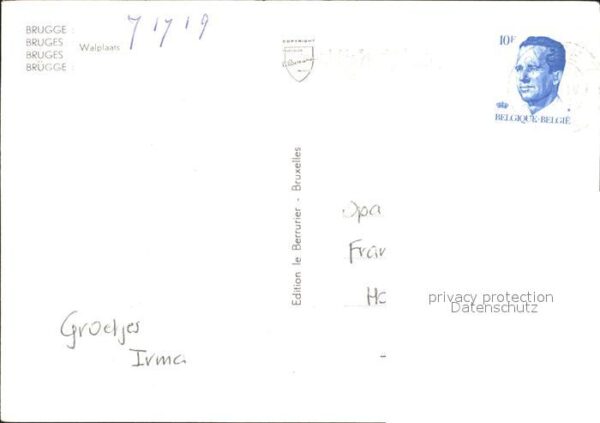 BRUGGE :
BRUGES :
BRUGES
BRÜGGE :
Walplaats
71719
COPYRIGHT
10F
BELGIQUE-BELGIË
Edition le Berrurier - Bruxelles
Opa
Fran
Ho
privacy protection
Datenschutz
Groetjes
Irma